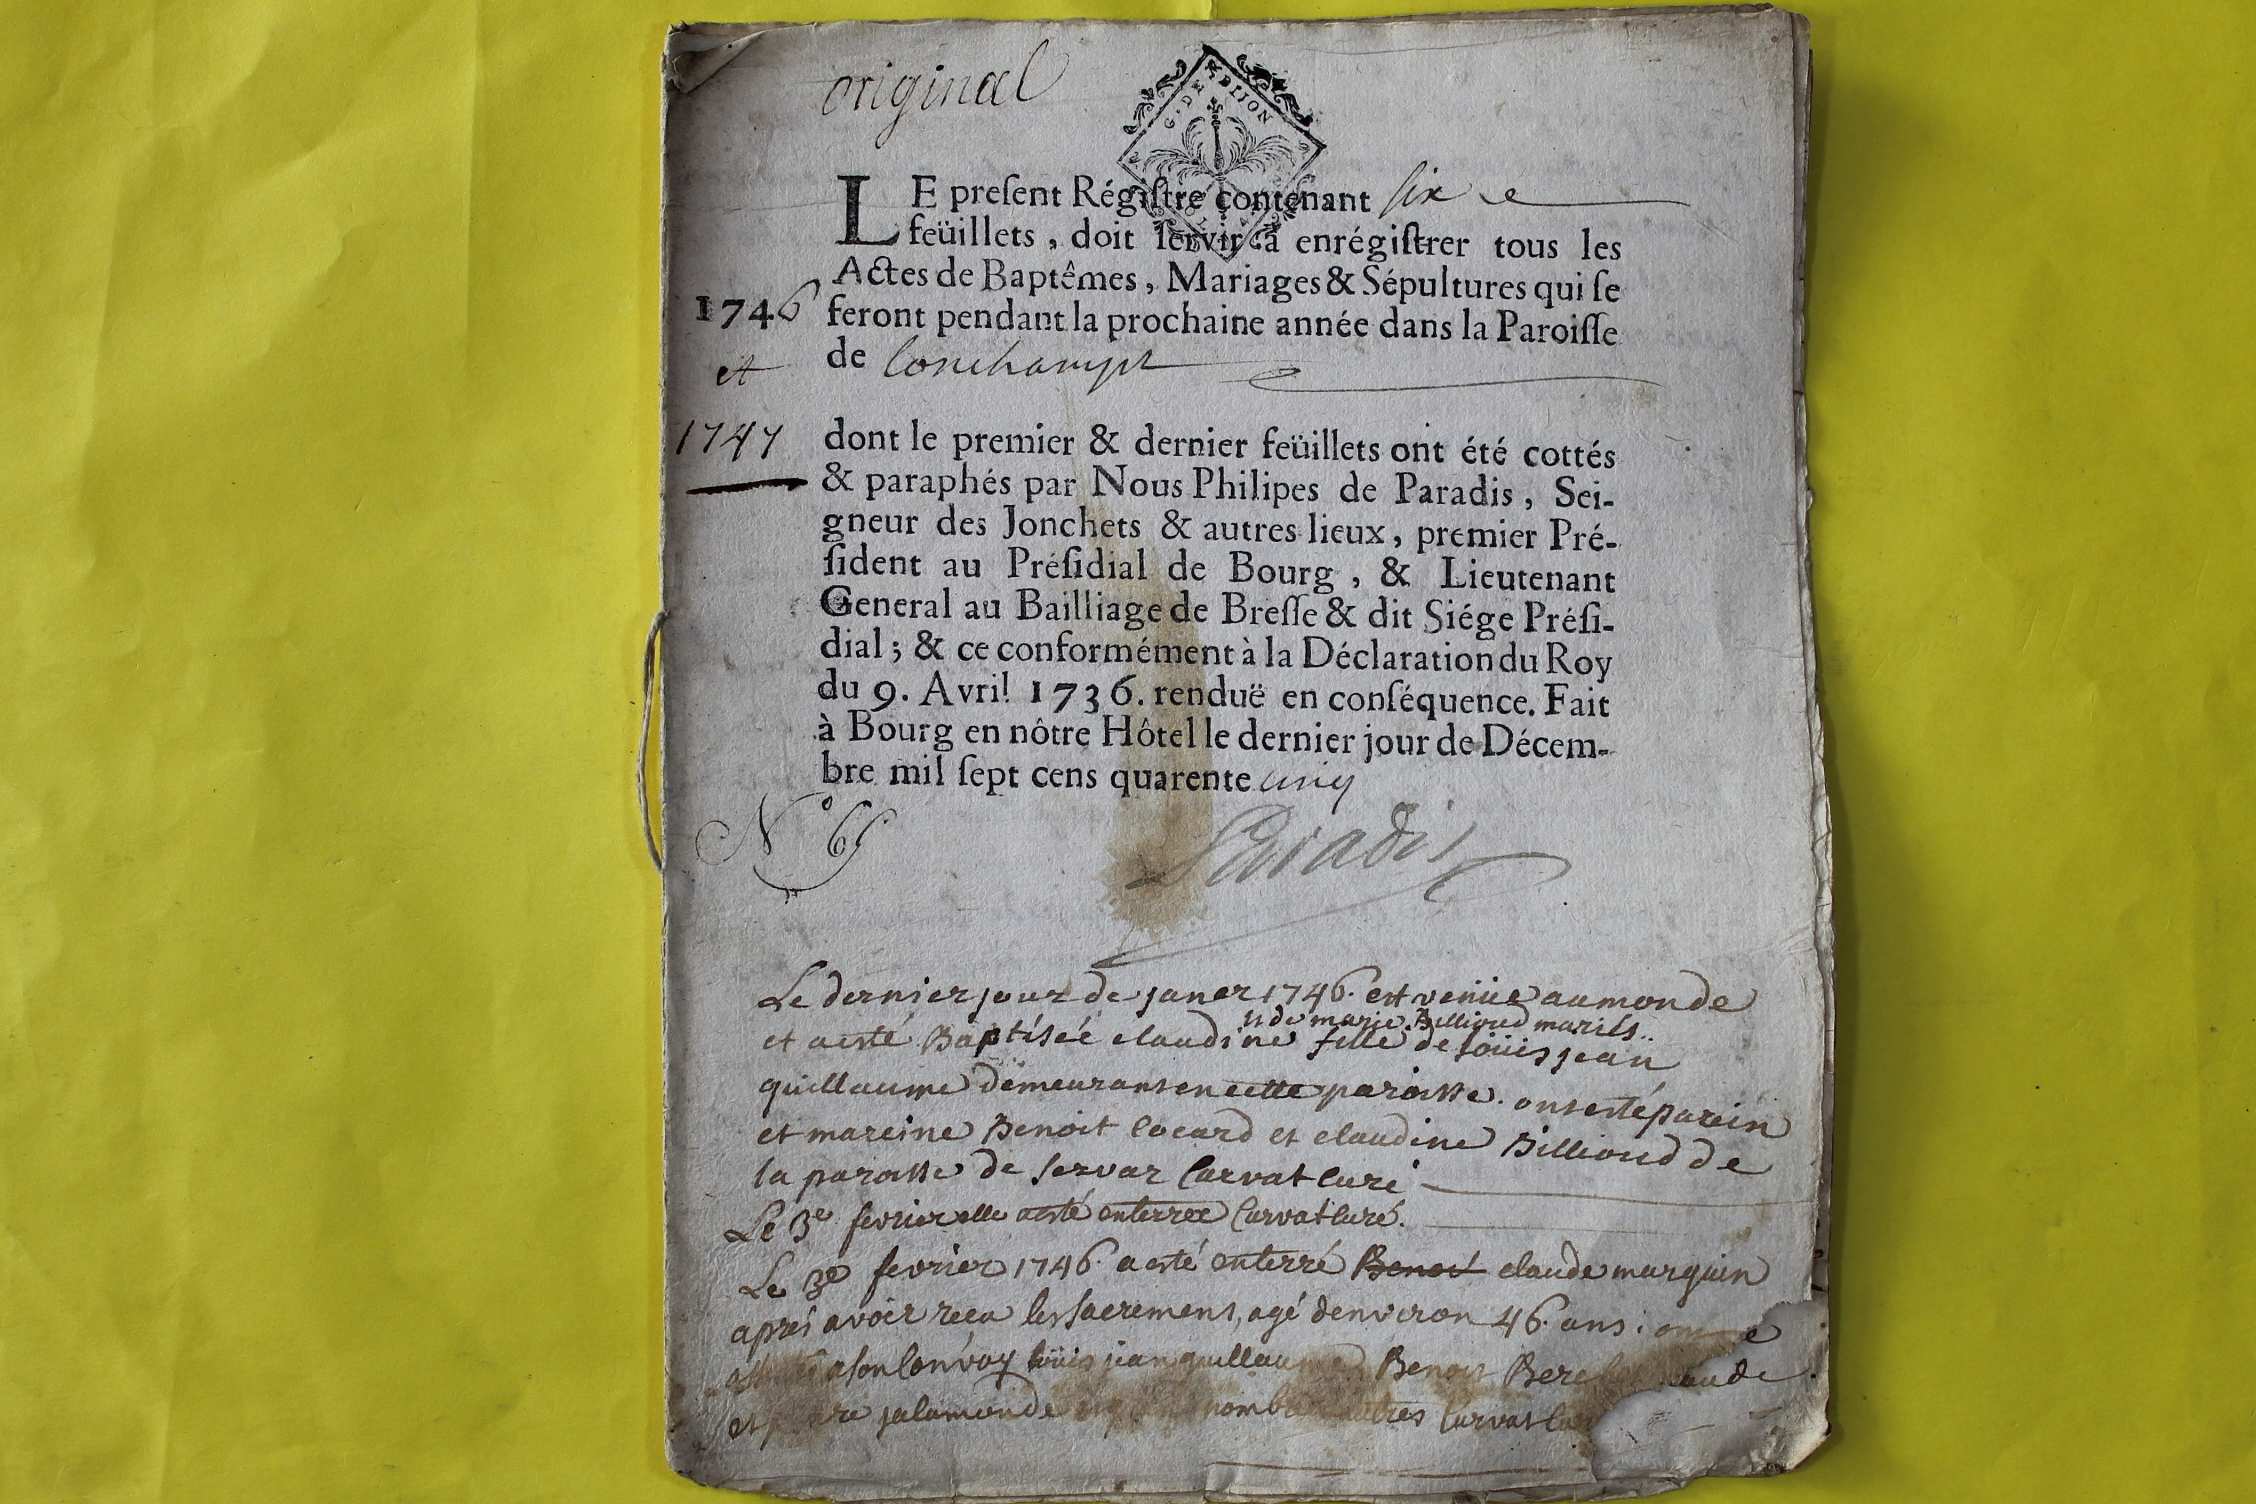 original
G. DE DIJON
LE preſent Régiſtre contenant ſix
feüillets, doit ſervir à enrégiſtrer tous les
Actes de Baptêmes, Mariages & Sépultures qui ſe
1746 feront pendant la prochaine année dans la Paroiſſe
et de Lonchampt
1747 dont le premier & dernier feüillets ont été cottés
& paraphés par Nous Philipes de Paradis, Sei-
gneur des Jonchets & autres lieux, premier Pré-
ſident au Préſidial de Bourg, & Lieutenant
General au Bailliage de Breſſe & dit Siége Préſi-
dial; & ce conformément à la Déclaration du Roy
du 9. Avril 1736. renduë en conſéquence. Fait
à Bourg en nôtre Hôtel le dernier jour de Décem-
bre mil ſept cens quarente cinq
N° 65
Paradis
Le dernier jour de janer 1746. est venüe au monde
et de marie Billioud mariés..
et a esté Baptiséé claudine fille de loüis jean
guillaume demeurans en cette paroisse. ont esté parein
et mareine Benoit Cocard et claudine Billioud de
la paroisse de servas Carvat Curé
Le 3e fevrier elle a esté enterree Curvat Curé.
Le 3e fevrier 1746. a esté enterré Benoit claude marguin
aprés avoir reçu les sacremens, agé denviron 46. ans. on
a son Convoy loüis jean guillaume Benoit
et jalamonde Curvat